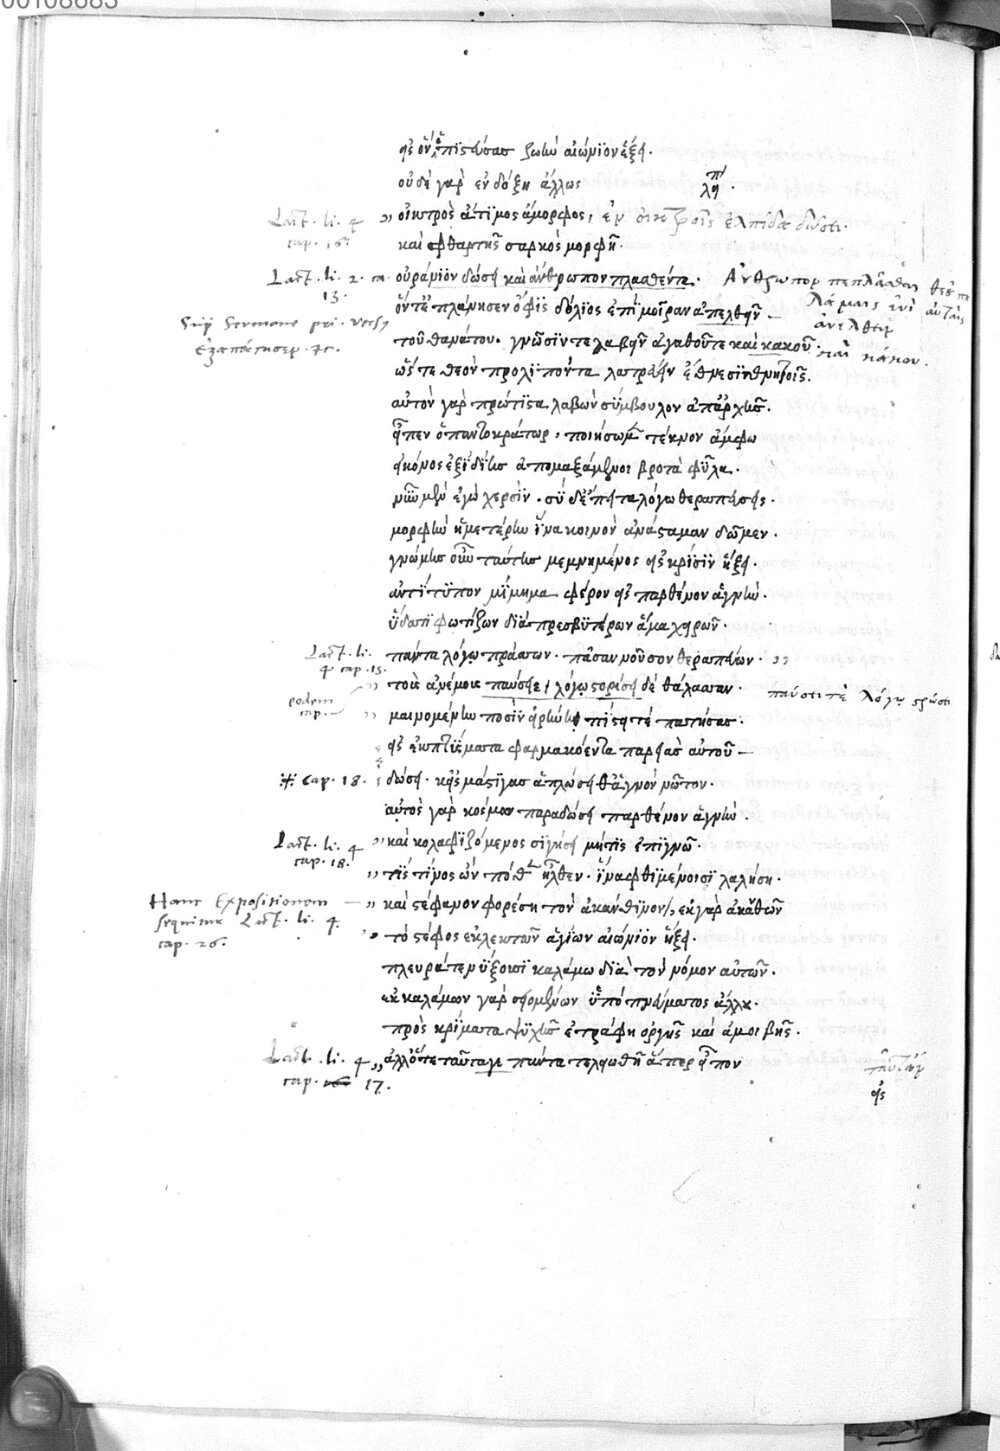 00108683
εἰς ὃν ὁ πιστεύσας ζωὴν αἰώνιον ἕξει.
οὐδὲ γὰρ ἐν δόξῃ ἀλλως
Lact. li. 4 cap. 16. ,, οἰκτρὸς ἄτιμος ἄμορφος, ἐν οἰκτροῖς ἐλπίδα δώσει.
καὶ φθαρτῆς σαρκὸς μορφῇ.
Lact. li. 2. ca. 13. οὐράνιον δώσει καὶ ἄνθρωπον πλασθέντα. Ἀνθρωπον πεπλάσθαι θεοῦ πα
λάμαις ἐνὶ αὐταῖς
ὅντε πλάνησεν ὄφις δόλιος ἐπὶ μοῖραν ἀπελθεῖν
ἀνελθεῖν
τοῦ θανάτου. γνῶσίν τε λαβεῖν ἀγαθοῦ τε καὶ κακοῦ. καὶ κακου.
ὥστε θεὸν προλιπόντα λατρεύειν ἔθμεσι θνητοῖς.
αὐτὸν γὰρ πρώτιστα λαβὼν σύμβουλον ἀπαρχῆς.
εἶπεν ὁ παντοκράτωρ, ποιήσωμεν τέκνον ἄμφω
εἰκόνος ἐξ ἰδίης ἀπομαξάμενοι βροτὰ φῦλα.
νῦν μὲν ἐγὼ χερσὶν. σὺ δ' ἔπειτα λόγω θεραπεύσεις.
μορφὴν ἡμετέρην ἵνα κοινὸν ἀνάσταμαν δῶμεν.
γνώμης οὖν ταύτης μεμνημένος εἰς κρίσιν ἥξει.
ἀντίτυπον μίμημα φέρον εἰς παρθένον ἁγνὴν.
ὕδατι φωτίζων διὰ πρεσβυτέρων ἅμα χειρῶν.
Lact. li. 4 cap. 15. πάντα λόγῳ πράσσων. πᾶσαν νοῦσον θεραπεύων. ,,
eodem cap. ,, τοὺς ἀνέμους παύσειε λόγῳ στορέσει δὲ θάλασσαν. παύσει τὲ λόγῳ
,, μαινομένην ποσὶν εἰρήνης πίστει τὲ πατήσας.
εἰς ἐκπτύσματα φαρμακόεντα παρειὰς αὐτοῦ
cap. 18. δώσει. κεἰς μάστιγας ἁπλώσει θ' ἁγνὸν νῶτον.
αὐτὸς γὰρ κόσμον παραδώσει παρθένον ἁγνὴν.
Lact. li. 4 cap. 18. ,, καὶ κολαφιζόμενος σιγήσει μήτις ἐπιγνῶ.
,, τίς τίνος ὢν πόθεν ἦλθεν. ἵνα φθιμένοισι λαλήσῃ.
Hanc Expositionem ,, καὶ στέφανον φορέσῃ τὸν ἀκάνθινον, ἐκ γὰρ ἀκανθῶν
sequitur Lact. li. 4. cap. 26. ,, τὸ στέφος ἐκλεκτῶν ἁγίων αἰώνιον ἥξει.
πλευρά τε νύξουσι καλάμω διὰ τὸν νόμον αὐτῶν.
ἐκ καλάμων γὰρ σειομένων ὑπὸ πνεύματος ἄλλου.
πρὸς κρίματα ψυχῆς ἐτράφη ὀργῆς καὶ ἀμοιβῆς.
Lact. li. 4 cap. 17. ,, ἀλλ' ὅτε ταῦτα γε πάντα τελειωθῇ ἅπερ εἶπον ταῦτα
εἰς